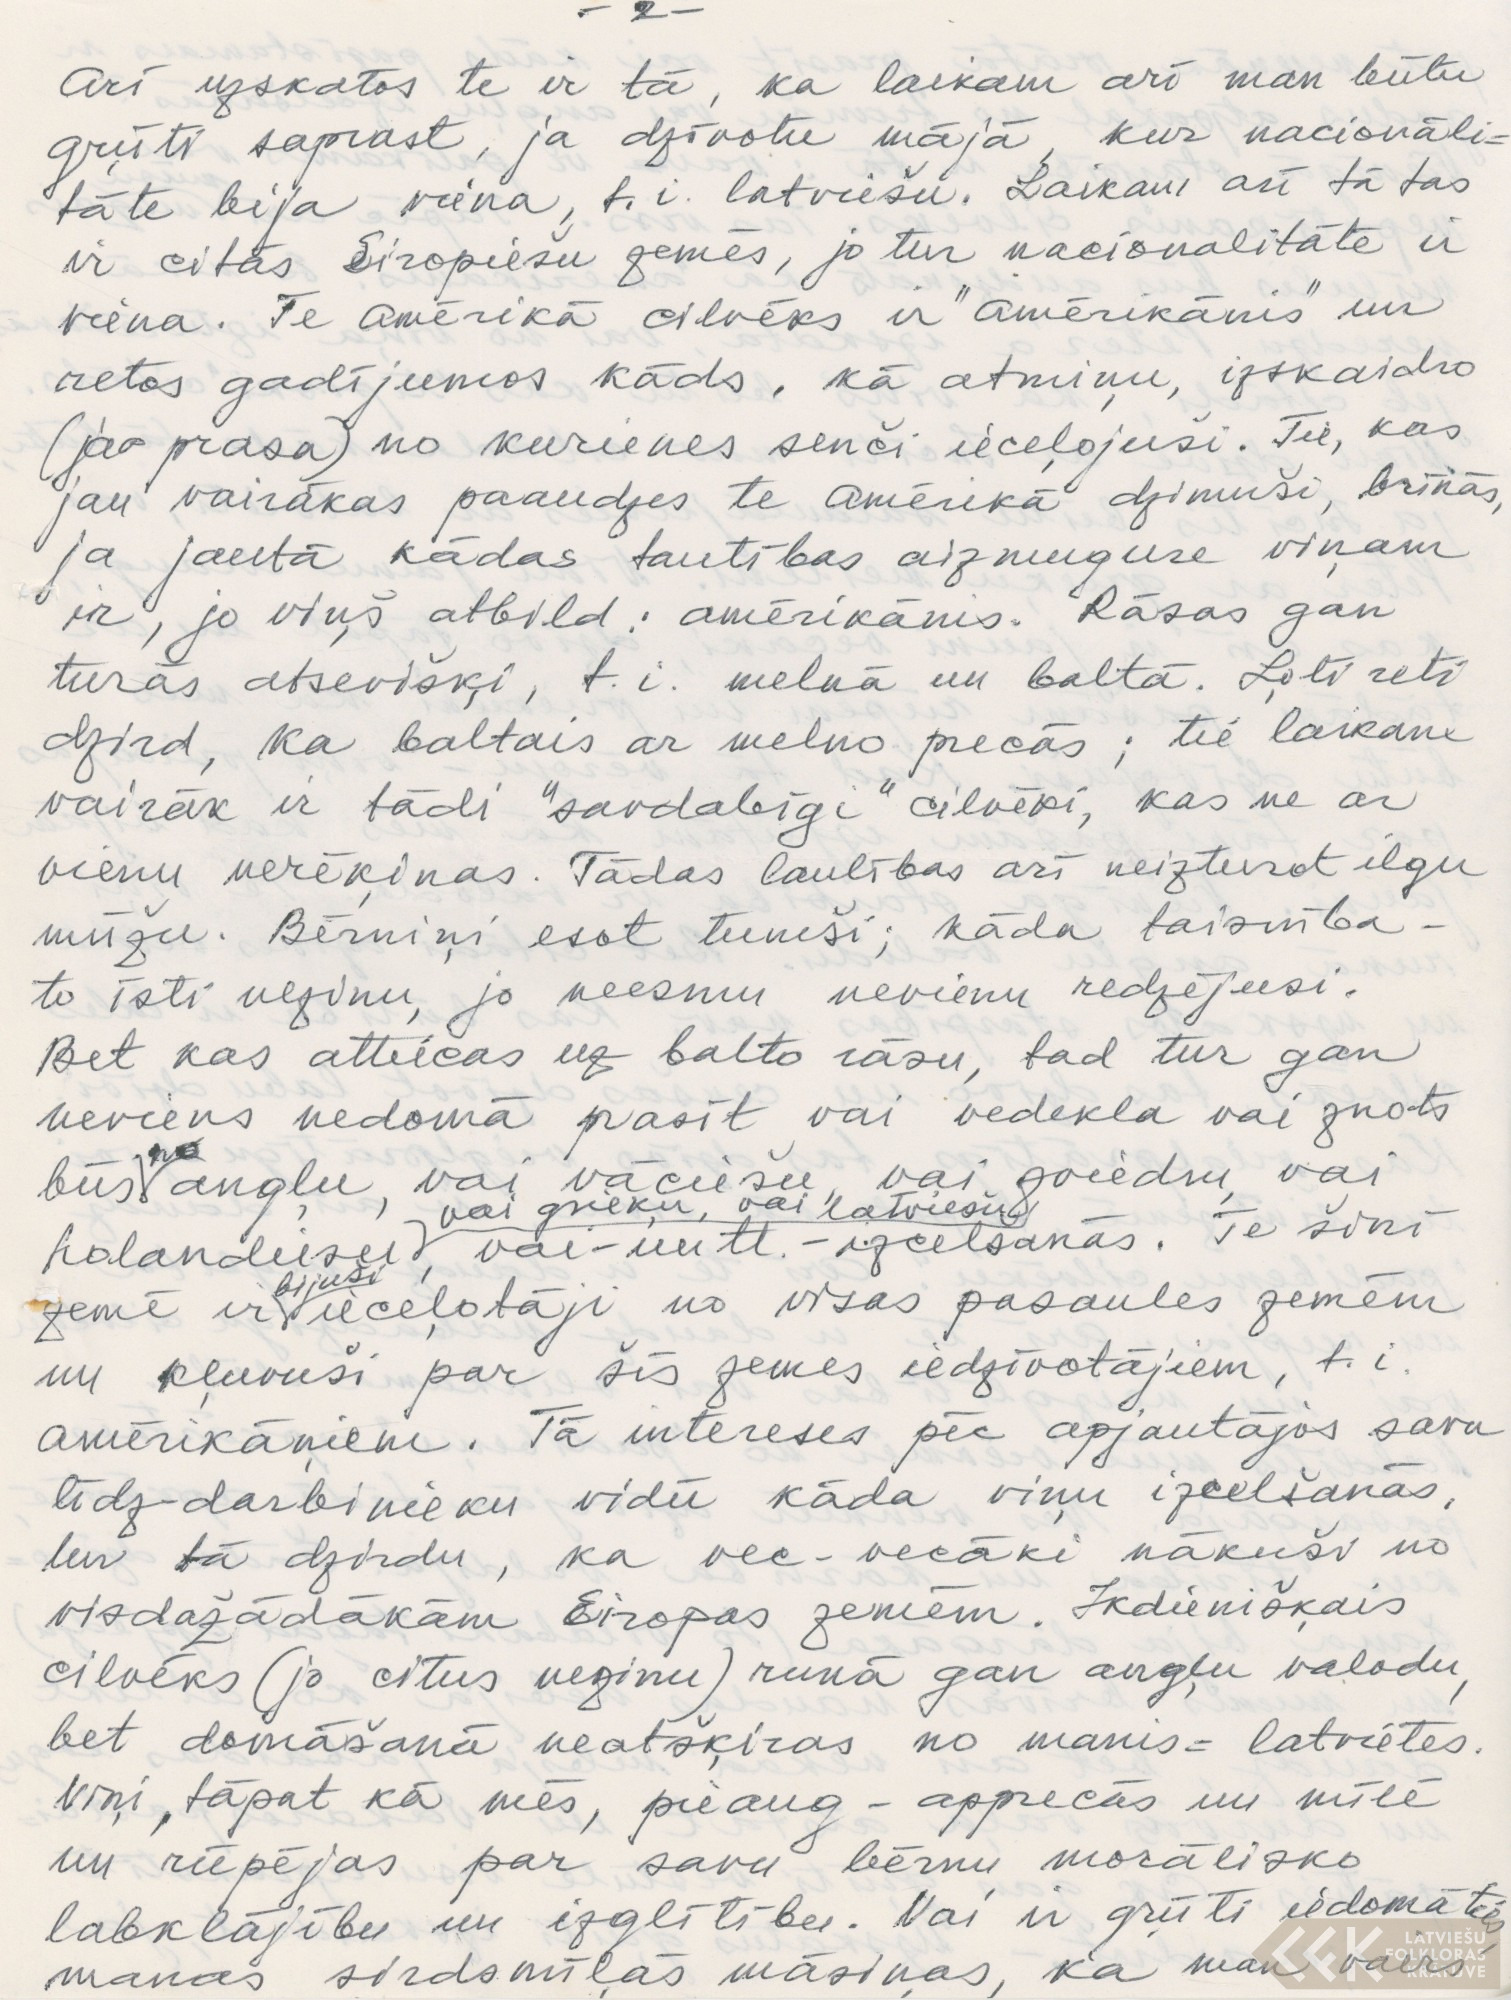 - 2 -
Arī uzskatos te ir tā, ka laikam arī man būtu
grūti saprast, ja dzīvotu mājā, kur nacionāli=
tāte bija viena, t.i. latviešu. Laikam arī tā tas
ir citās Eiropiešu zemēs, jo tur nacionalitāte ir
viena. Te Amērikā cilvēks ir "amērikānis" un
retos gadījumos kāds, kā atmiņu, izskaidro
(ja prasa) no kurienes senči ieceļojuši. Tie, kas
jau vairākas paaudzes te Amērikā dzimuši, brīnās,
ja jautā kādas tautības aizmugure viņam
ir, jo viņš atbild: amērikānis. Rāsas gan
turās atsevišķi, t.i. melnā un baltā. Ļoti reti
dzird, ka baltais ar melno precās; tie laikam
vairāk ir tādi "savdabīgi" cilvēki, kas ne ar
vienu nerēķinas. Tādas laulības arī neizturot ilgu
mūžu. Bērniņi esot tumši; kāda taisnība -
to īsti nezinu, jo neesmu nevienu redzējusi.
Bet kas attiecas uz balto rāsu, tad tur gan
neviens nedomā prasīt vai vedekla vai znots
būs no angļu, vai vāciešu, vai zviedru, vai
holandiešu, vai grieķu, vai latviešu, vai - u.t.t. - izcelšanās. Te šinī
zemē ir bijuši ieceļotāji no visas pasaules zemēm
un kļuvuši par šīs zemes iedzīvotājiem, t.i.
amērikāņiem. Tā intereses pēc apjautājos savu
līdz-darbinieku vidū kāda viņu izcelšanās,
tur tā dzirdu, ka vec-vecāki nākuši no
visdažādākām Eiropas zemēm. Ikdienišķais
cilvēks (jo citus nezinu) runā gan angļu valodu,
bet domāšanā neatšķiras no manis = latvietes.
Viņi, tāpat kā mēs, pieaug - apprecās un mīlē
un rūpējas par savu bērnu morālisko
labklājību un izglītību. Vai ir grūti iedomāties
manas sirdsmīļās māsiņas, ka man vairs
LATVIEŠU
FOLKLORAS
KRĀTUVE